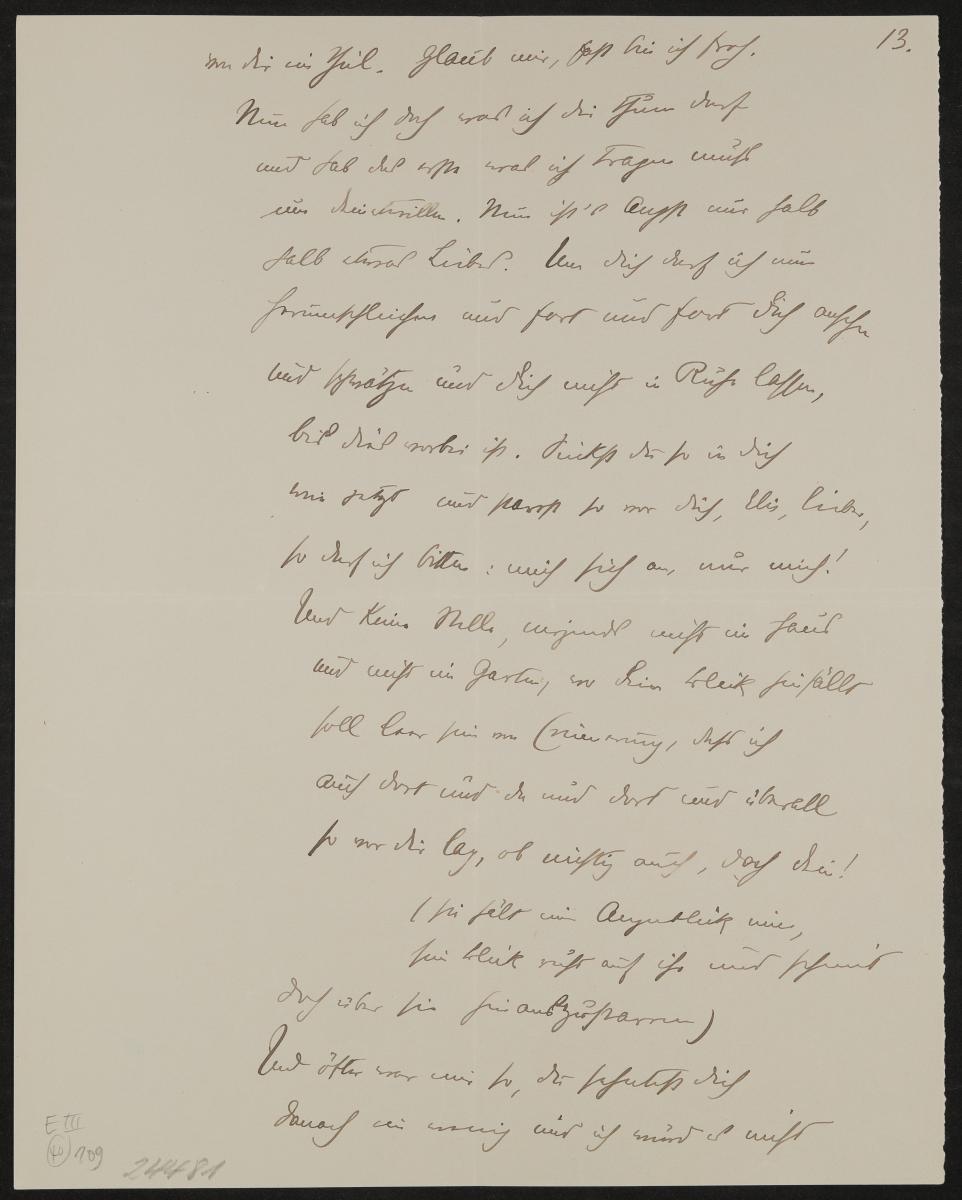 13.
von dir ein Theil. Glaub mir, fast bin ich froh.
Nun hab ich doch was ich dir thun darf
und hab das erste was ich tragen muß
um deinetwillen. Nun ist's Angst nur halb
halb etwas Liebes. Um dich darf ich nun
herumschleichen und fort und fort dich ansehn
und schwätzen und dich nicht in Ruhe lassen,
bis dies vorbei ist. Sinkst du so in dich
wie jetzt und starrst so vor dich, Elis, lieber,
so darf ich bitten: mich sieh an, nur mich!
Und keine Stelle, nirgends nicht im Haus
und nicht im Garten, wo dein Blick hinfällt
soll leer sein von Erinnerung, daß ich
auch dort und da und dort und überall
so vor dir lag, ob nichtig auch, doch dein!
(sie hält einen Augenblick inne,
sein Blick ruht auf ihr und scheint
doch über sie hinauszustarren)
Und öfter war mir so, du sehntest dich
danach ein wenig und ich würd es nicht
E III
109
24481